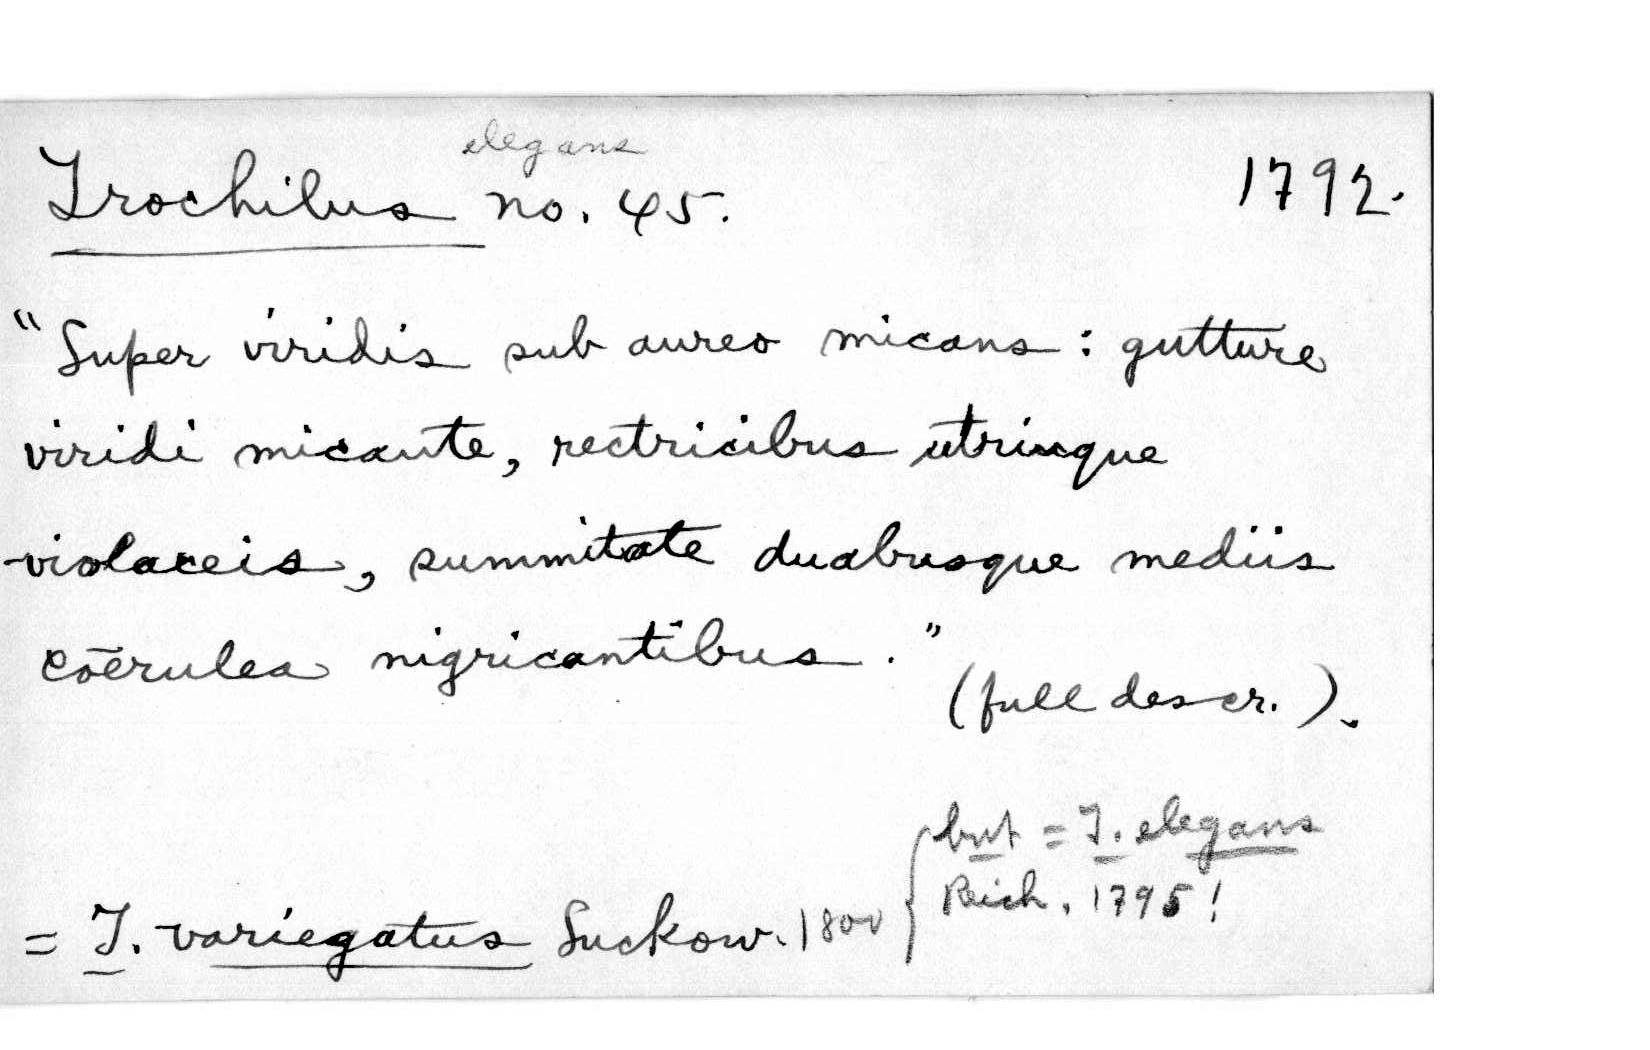 elegans
Trochilus no. 45. 1792.
"Super viridis sub aureo micans: gutture
viridi micante, rectricibus utrinque
violaceis, summitate duabusque mediis
cōerulea nigricantibus."
(full descr.).
but = T. elegans
Reich. 1795!
= T. variegatus Suckow. 1800